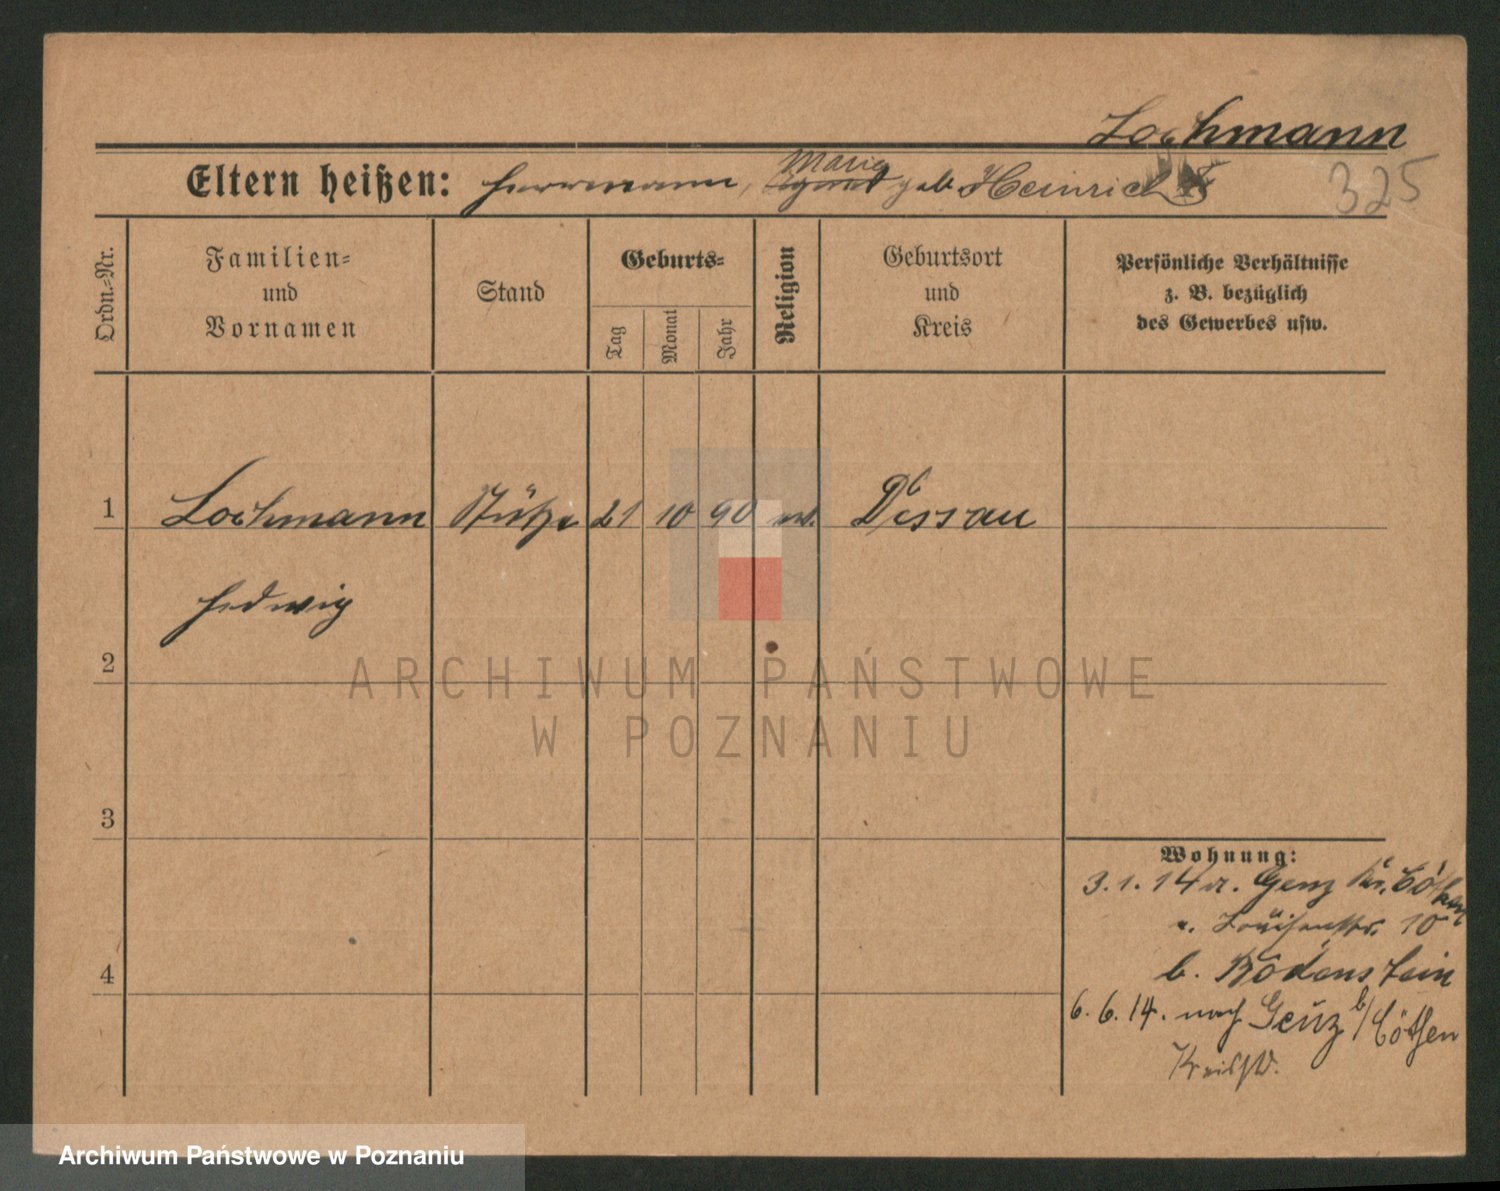 Lochmann
Eltern heißen: Herrmann, Marie geb. Heinrich
325
Ordn.-Nr.
Familien-
und
Vornamen
Stand
Geburts-
Tag
Monat
Jahr
Religion
Geburtsort
und
Kreis
Persönliche Verhältnisse
z. B. bezüglich
des Gewerbes usw.
1 Lochmann Stütze 21 10 90 ev. Dessau
Hedwig
2
ARCHIWUM PAŃSTWOWE
W POZNANIU
3
Wohnung:
3.1.14 Kr. Cöthen
Louisenstr. 10
b. Bodenstein
6.6.14. nach Geuz b/Cöthen
Archiwum Państwowe w Poznaniu
4